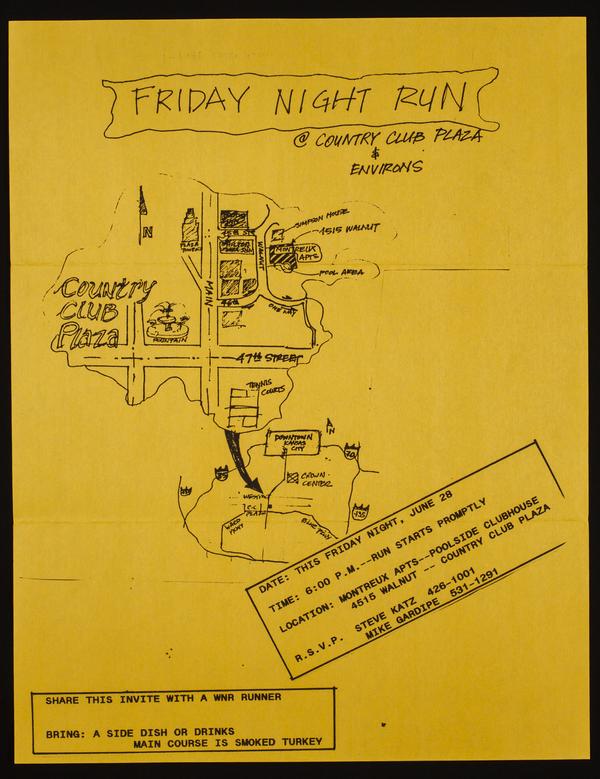 FRIDAY NIGHT RUN
@ COUNTRY CLUB PLAZA
&
ENVIRONS
N
SIMPSON HOUSE
4515 WALNUT
45TH ST
PLAZA
MONTREUX
APTS
WALNUT
POOL AREA
MAIN
46TH
ONE WAY
COUNTRY
CLUB
PLAZA
FOUNTAIN
47TH STREET
TENNIS
COURTS
N
DOWNTOWN
KANSAS
CITY
70
35
CROWN
CENTER
WESTPORT
C.C.
PLAZA
435
WARD
PKWY
BLUE PKWY
DATE: THIS FRIDAY NIGHT, JUNE 28
TIME: 6:00 P.M.--RUN STARTS PROMPTLY
LOCATION: MONTREUX APTS--POOLSIDE CLUBHOUSE
4515 WALNUT -- COUNTRY CLUB PLAZA
R.S.V.P. STEVE KATZ 426-1001
MIKE GARDIPE 531-1291
SHARE THIS INVITE WITH A WNR RUNNER
BRING: A SIDE DISH OR DRINKS
MAIN COURSE IS SMOKED TURKEY